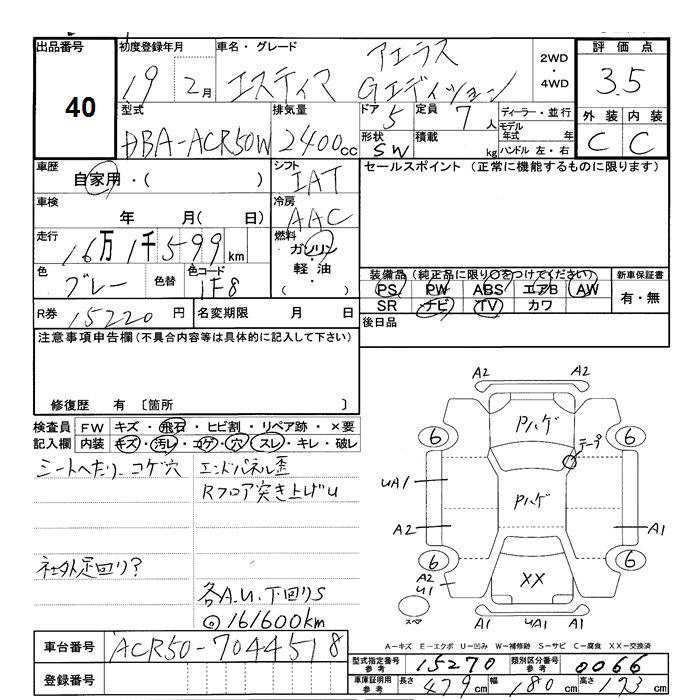 出品番号 初度登録年月 車名・グレード 2WD・4WD 評価点
40 19 2月 エスティマ アエラス Gエディション 3.5
型式 排気量 ドア 定員 ディーラー・並行 外装 内装
DBA-ACR50W 2400cc 5 7人 モデル年式 年 C C
形状 積載 ハンドル 左・右
SW kg
車歴 シフト セールスポイント (正常に機能するものに限ります)
自家用・( ) IAT
車検 冷房
年 月( 日) AAC
走行 燃料
16万1千599km ガソリン・軽油・( )
色 色替 色コード 装備品(純正品に限り○をつけてください) 新車保証書
グレー 1F8 PS PW ABS エアB AW 有・無
SR ナビ TV カワ
R券 15220円 名変期限 月 日 後日品
注意事項申告欄(不具合内容等は具体的に記入して下さい)
修復歴 有 〔箇所 〕
検査員記入欄 FW キズ・飛石・ヒビ割・リペア跡・×要
内装 キズ・汚レ・コゲ・穴・スレ・キレ・破レ
シートへたり、コゲ穴 エンドパネル歪
Rフロア突き上げU
社外足回り?
各A.U.下回りS
◎161600km
A2 A2
Pハゲ
6 6
テープ
UA1
Pハゲ
A2 A1
6 6
A2
U1
XX
スペア A1 UA1 A1
A-キズ E-エクボ U-凹み W-補修跡 S-サビ C-腐食 XX-交換済
車台番号 ACR50-7044518
型式指定番号参考 15270 類別区分番号参考 0066
登録番号
車庫証明用参考 長さ 479cm 幅 180cm 高さ 173cm